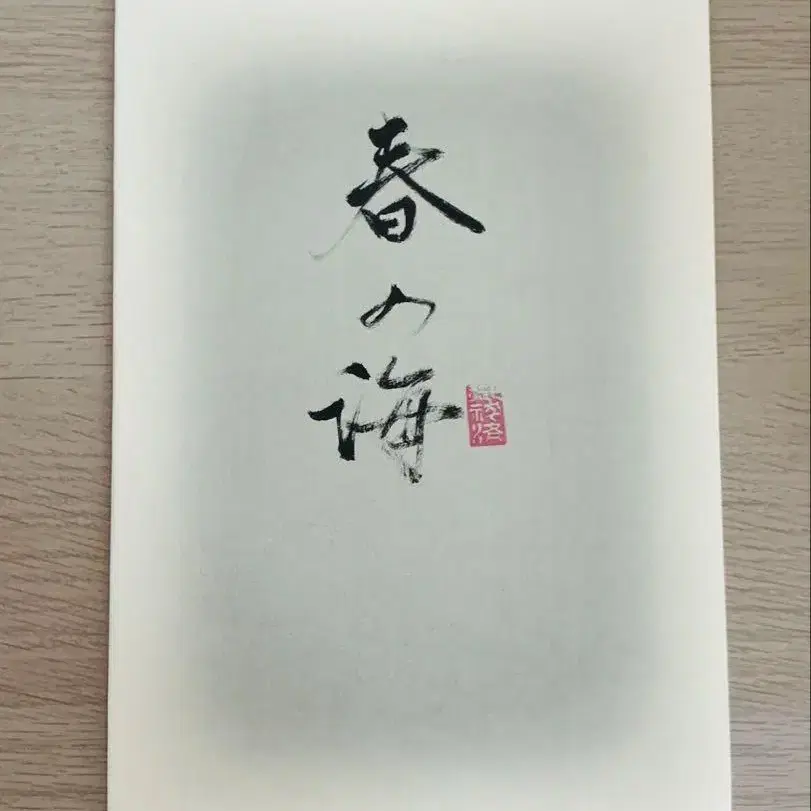 春
の
海